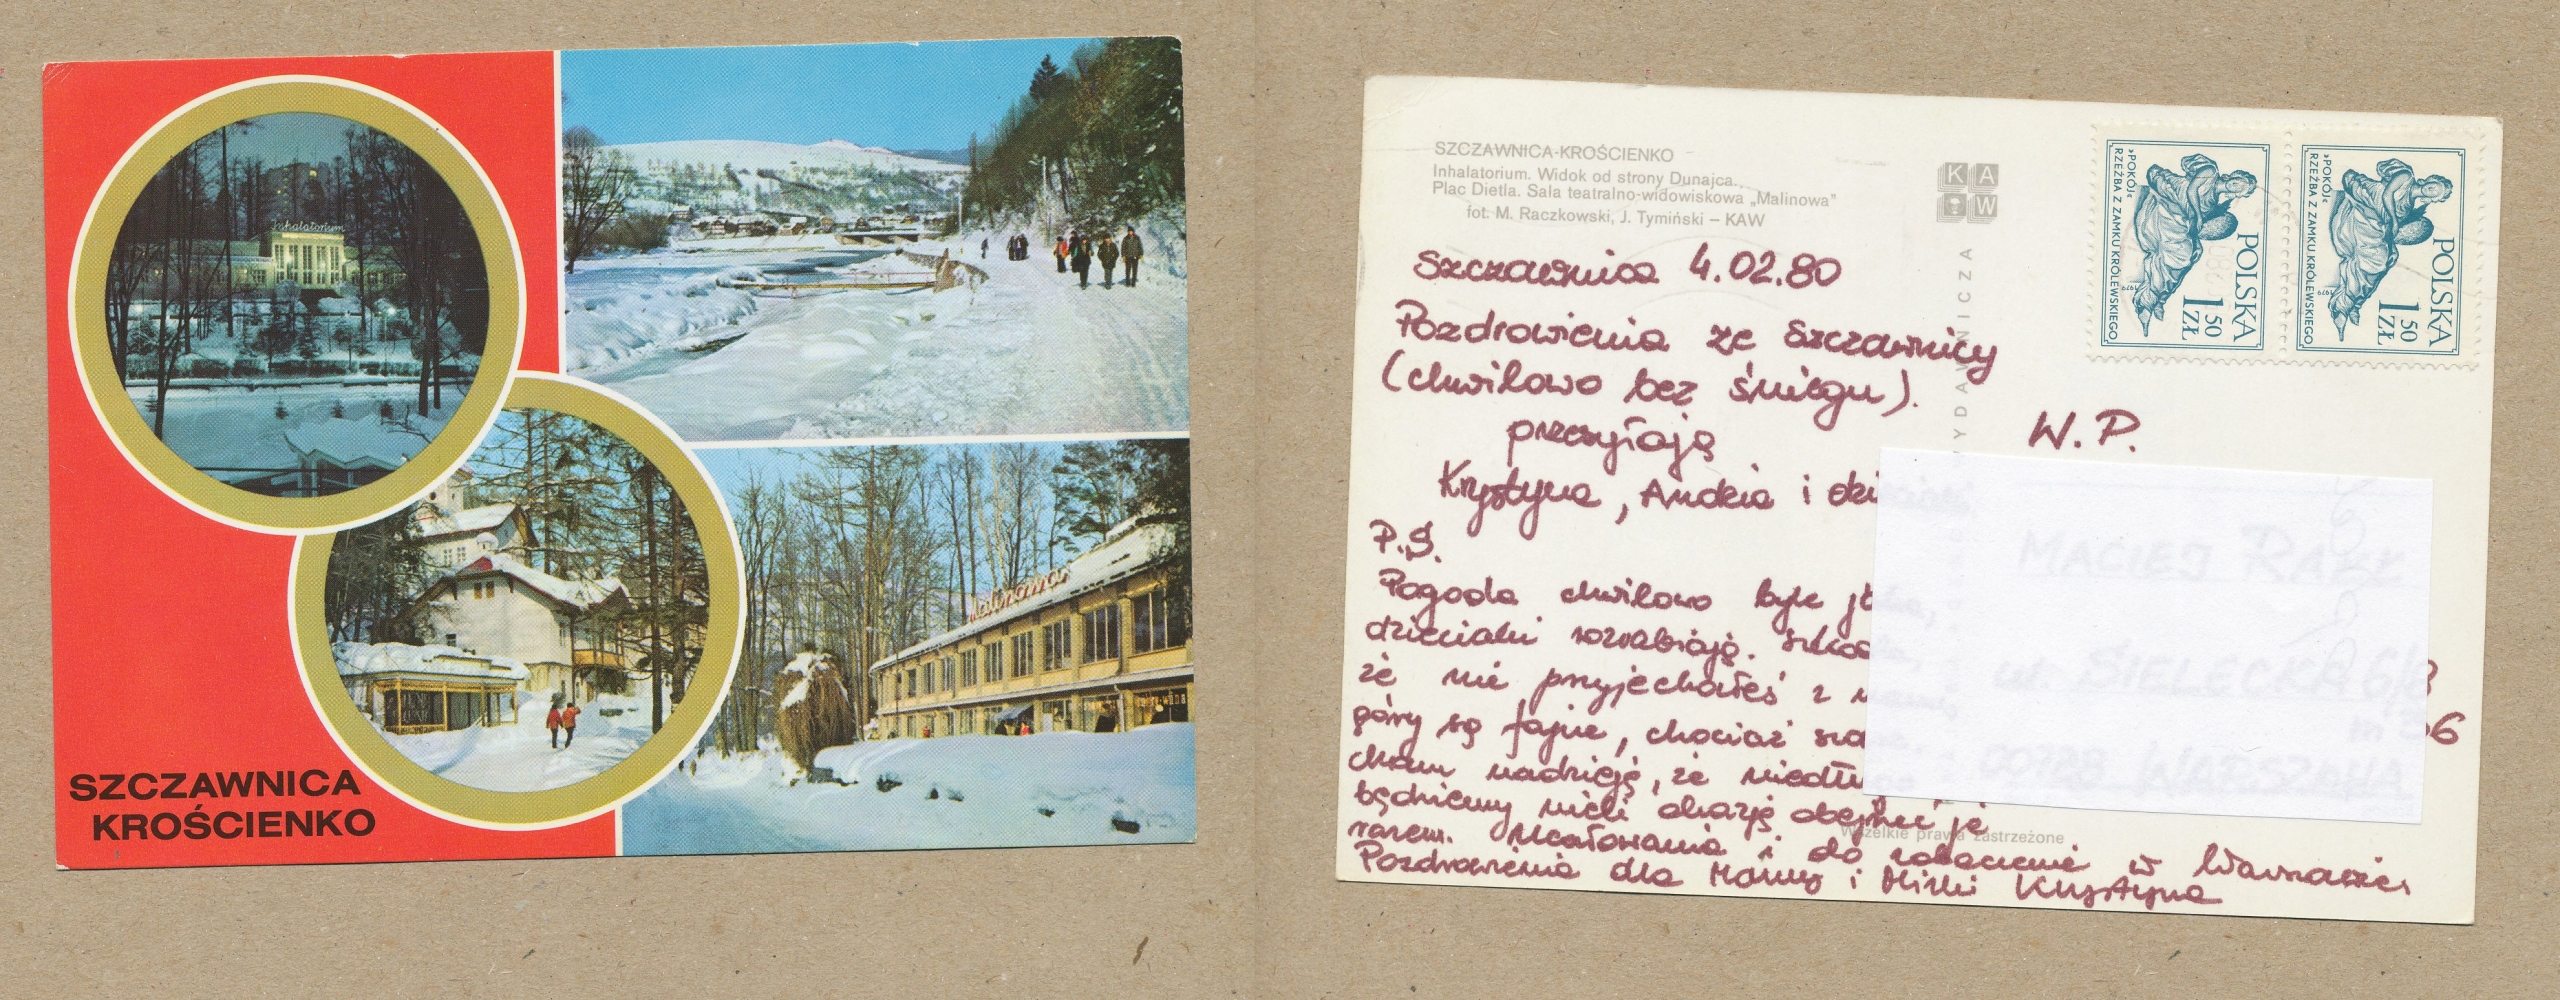 Inhalatorium
Malinowa
SZCZAWNICA
KROŚCIENKO
SZCZAWNICA-KROŚCIENKO
Inhalatorium. Widok od strony Dunajca.
Plac Dietla. Sala teatralno-widowiskowa „Malinowa”
fot. M. Raczkowski, J. Tymiński – KAW
KAW
POLSKA
1 50 ZŁ
»POKÓJ«
RZEŹBA Z ZAMKU KRÓLEWSKIEGO
1979
POLSKA
1 50 ZŁ
»POKÓJ«
RZEŹBA Z ZAMKU KRÓLEWSKIEGO
1979
Szczawnica 4.02.80
Pozdrowienia ze Szczawnicy
(chwilowo bez śniegu).
przesyłają
Krystyna, i
W.P.
P.S.
Pogoda chwilowo
dzieciaki rozrabiają.
że nie przyjechałeś z
góry są fajne, chociaż
nadzieję, że
będziemy mieli okazję obejrzeć je
razem. Ucałowania i do zobaczenia w Warszawie
Pozdrowienia dla Mamy i Mirki Krystyna
Wszelkie prawa zastrzeżone